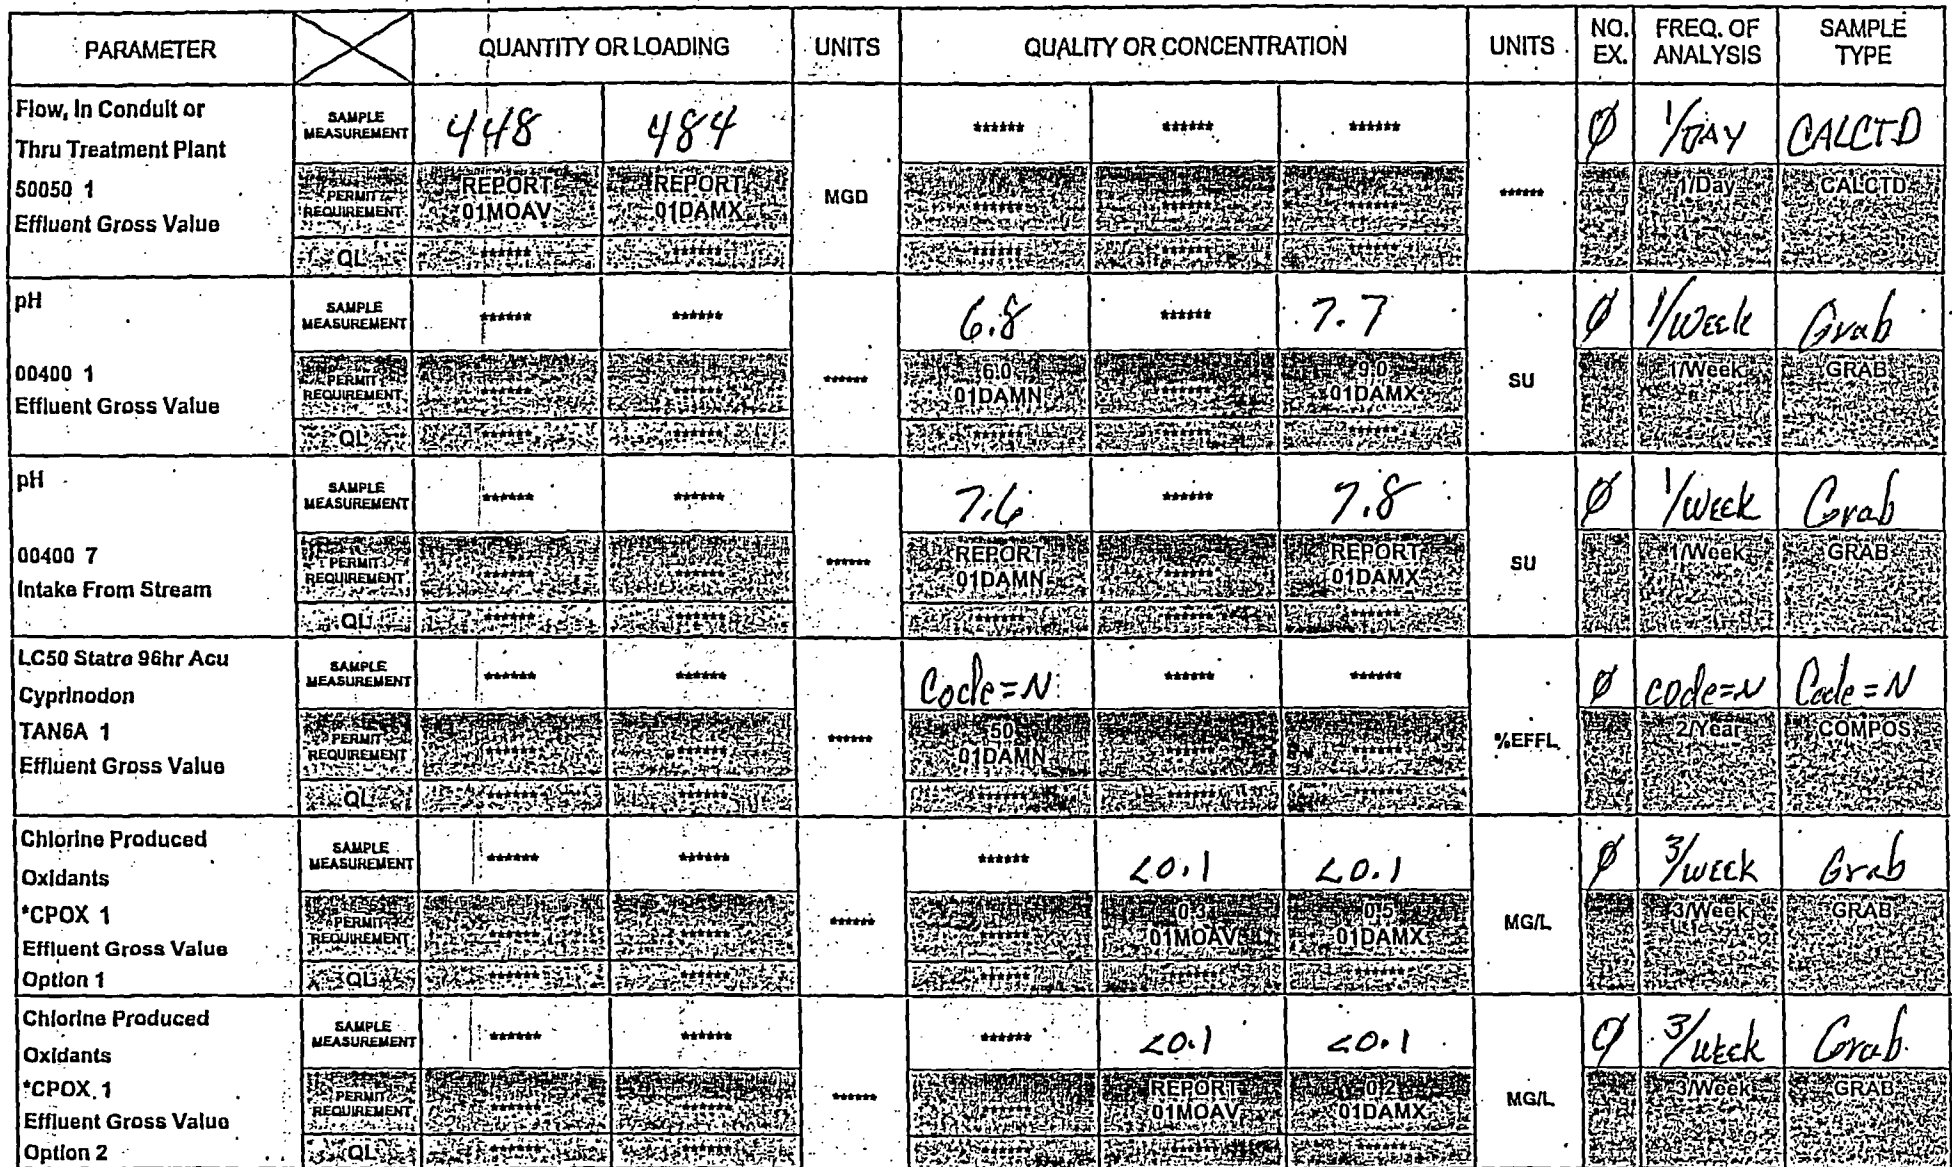 PARAMETER QUANTITY OR LOADING UNITS QUALITY OR CONCENTRATION UNITS NO. EX. FREQ. OF ANALYSIS SAMPLE TYPE
Flow, In Conduit or
Thru Treatment Plant
50050 1
Effluent Gross Value
SAMPLE MEASUREMENT 448 484 MGD ****** ****** ****** ****** Ø 1/DAY CALCTD
PERMIT REQUIREMENT REPORT 01MOAV REPORT 01DAMX ****** ****** ****** 1/Day CALCTD
QL ****** ****** ****** ****** ******
pH
00400 1
Effluent Gross Value
SAMPLE MEASUREMENT ****** ****** ****** 6.8 ****** 7.7 SU Ø 1/Week Grab
PERMIT REQUIREMENT ****** ****** 6.0 01DAMN ****** 9.0 01DAMX 1/Week GRAB
QL ****** ****** ****** ****** ******
pH
00400 7
Intake From Stream
SAMPLE MEASUREMENT ****** ****** ****** 7.6 ****** 7.8 SU Ø 1/Week Grab
PERMIT REQUIREMENT ****** ****** REPORT 01DAMN ****** REPORT 01DAMX 1/Week GRAB
QL ****** ****** ****** ****** ******
LC50 Statre 96hr Acu
Cyprinodon
TAN6A 1
Effluent Gross Value
SAMPLE MEASUREMENT ****** ****** ****** Code=N ****** ****** %EFFL Ø code=N Code=N
PERMIT REQUIREMENT ****** ****** 50 01DAMN ****** ****** 2/Year COMPOS
QL ****** ****** ****** ****** ******
Chlorine Produced
Oxidants
*CPOX 1
Effluent Gross Value
Option 1
SAMPLE MEASUREMENT ****** ****** ****** ****** <0.1 <0.1 MG/L Ø 3/week Grab
PERMIT REQUIREMENT ****** ****** ****** 0.3 01MOAV 0.5 01DAMX 3/Week GRAB
QL ****** ****** ****** ****** ******
Chlorine Produced
Oxidants
*CPOX 1
Effluent Gross Value
Option 2
SAMPLE MEASUREMENT ****** ****** ****** ****** <0.1 <0.1 MG/L Ø 3/week Grab
PERMIT REQUIREMENT ****** ****** ****** REPORT 01MOAV 0.2 01DAMX 3/Week GRAB
QL ****** ****** ****** ****** ******